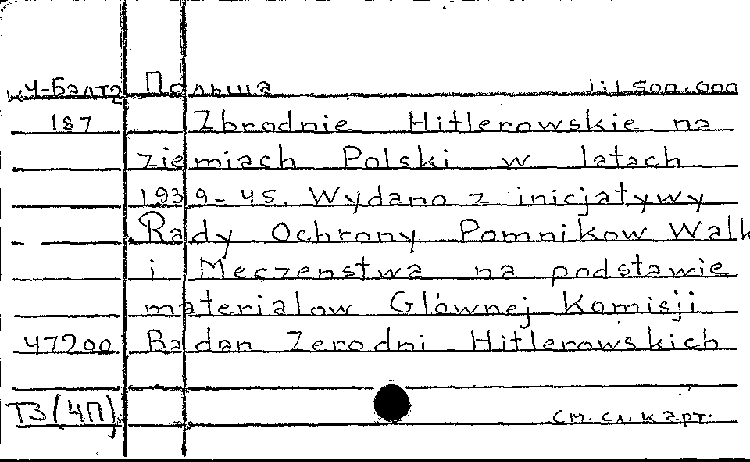 ку-Балтз Польша 1:1.500.000
187 Zbrodnie Hitlerowskie na
ziemiach Polski w latach
1939-45. Wydano z inicjatywy
Rady Ochrony Pomnikow Walk
i Meczenstwa na podstawie
materialow Glównej Komisji
47200 Badan Zerodni Hitlerowskich
ТЗ(4П) см. сл. карт.